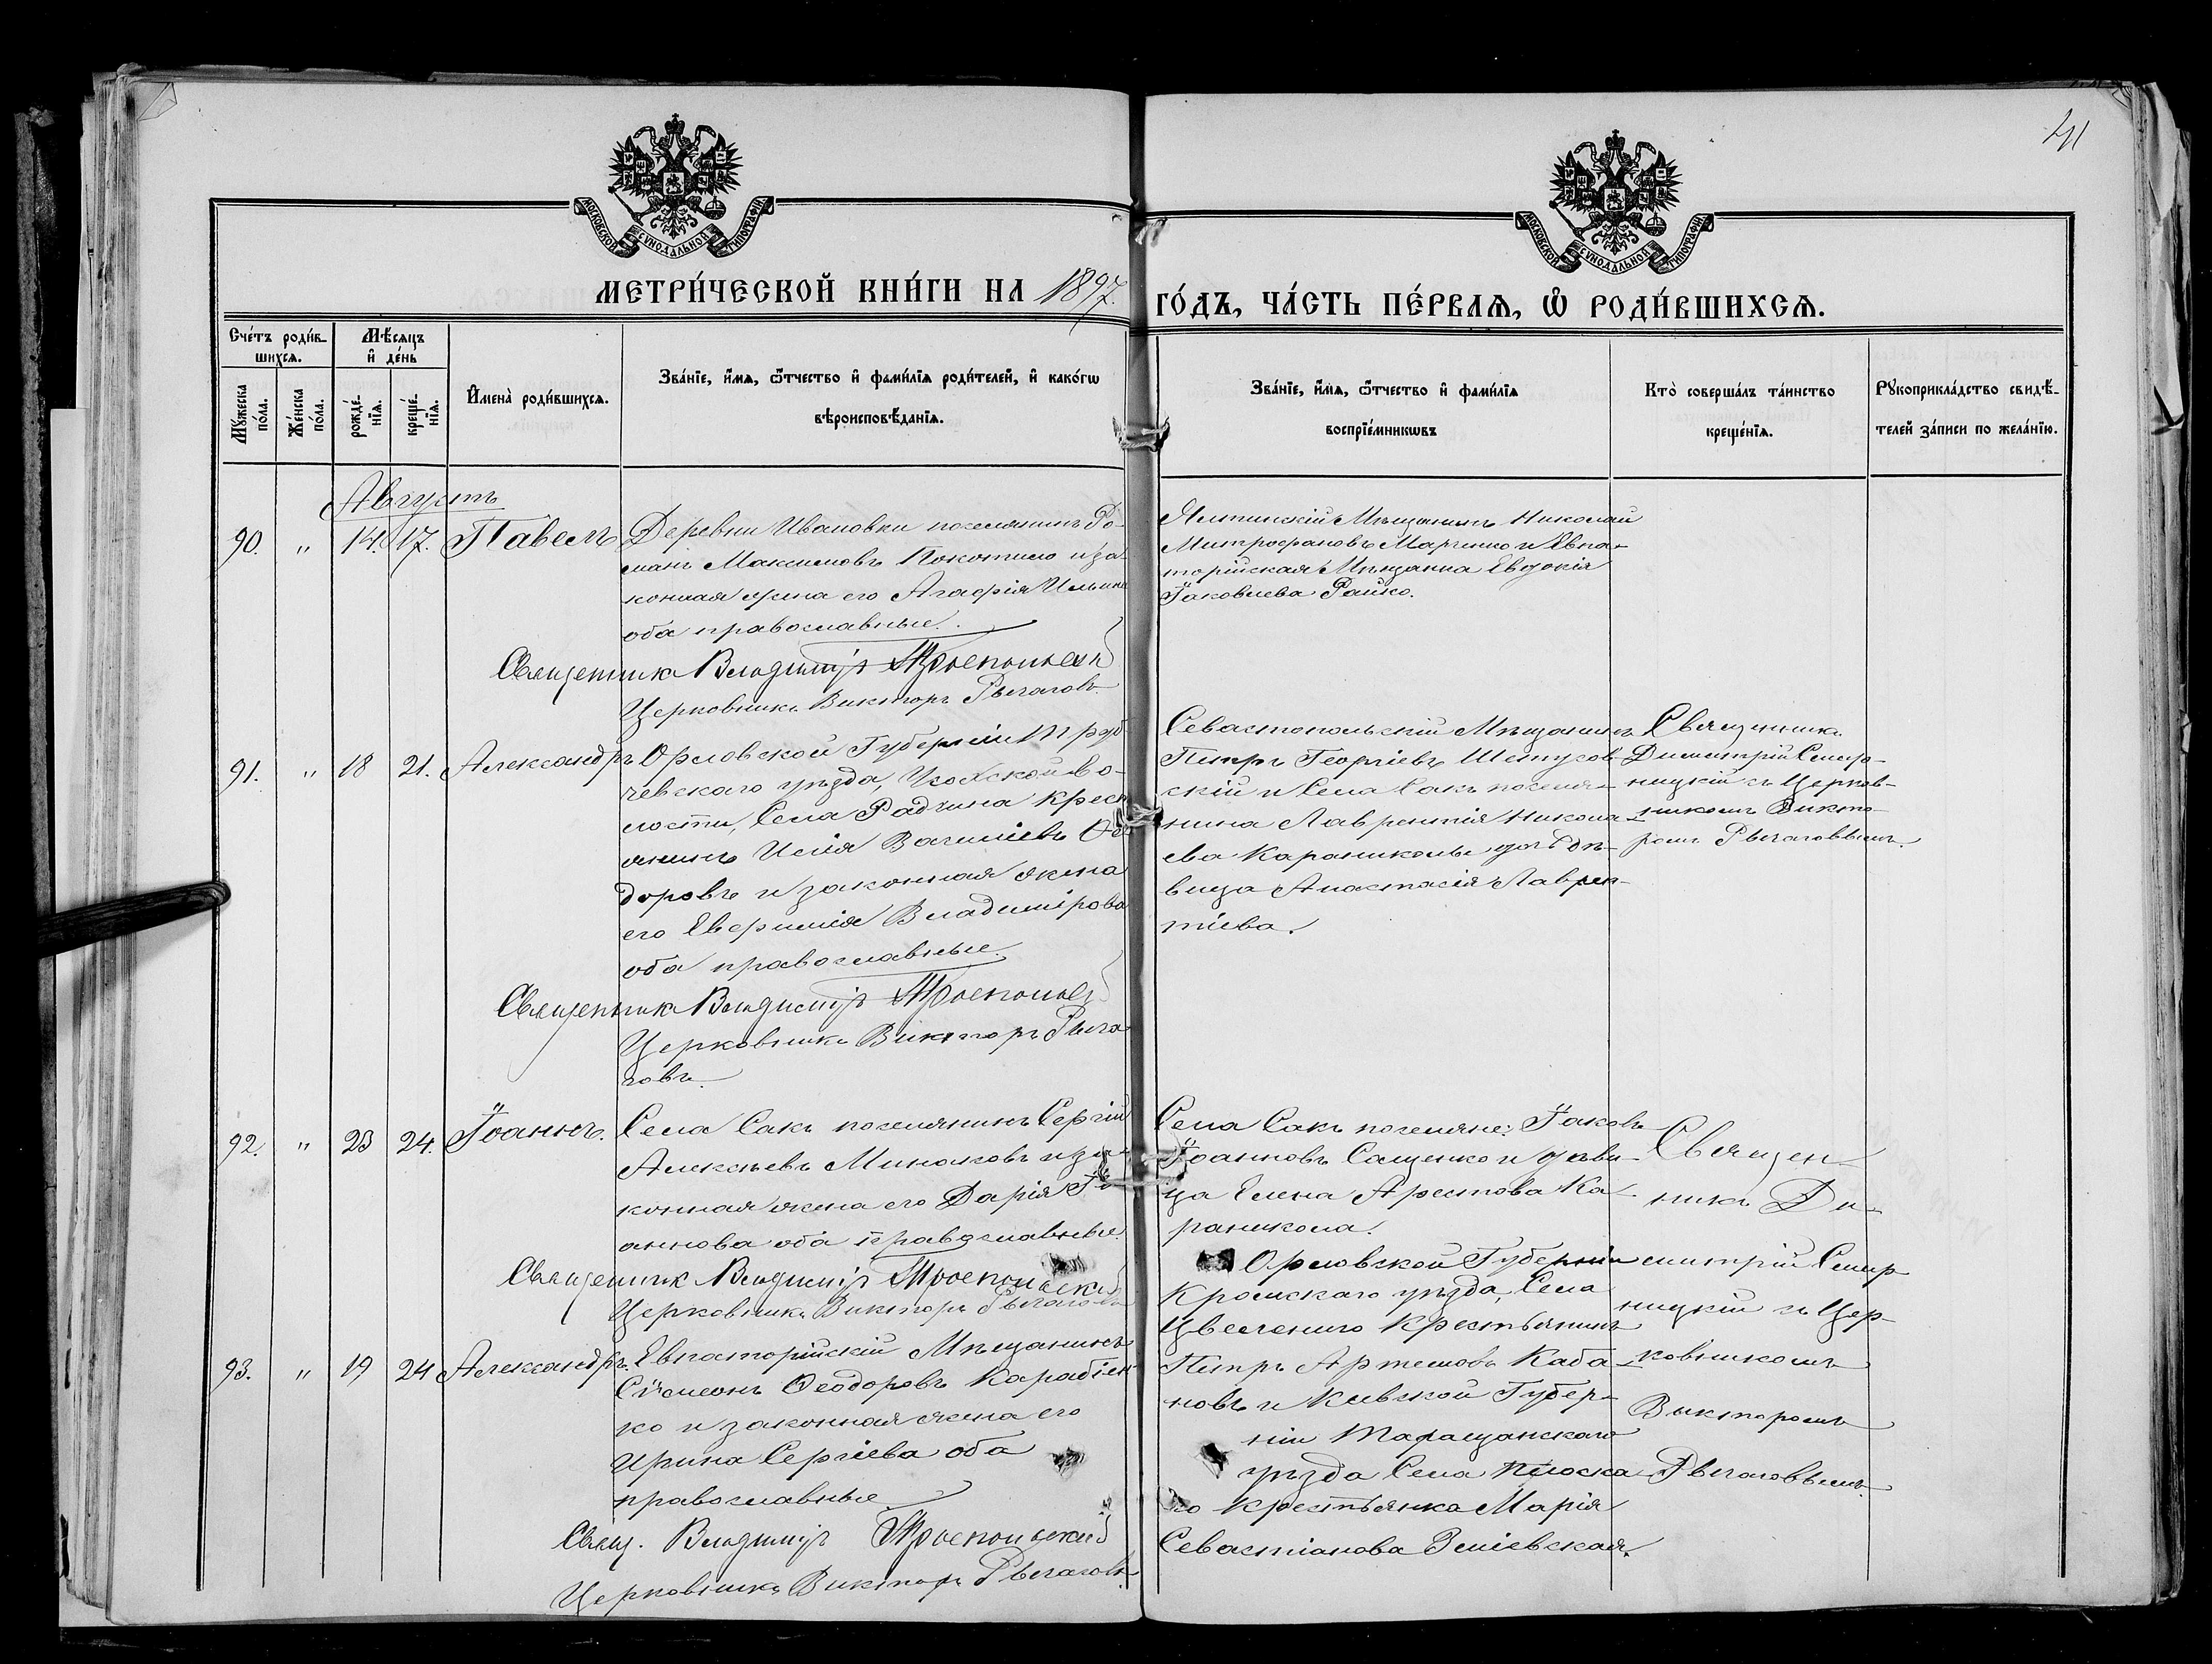 41
МОСКОВСКОЙ СѴНОДАЛЬНОЙ ТИПОГРАФІИ
МОСКОВСКОЙ СѴНОДАЛЬНОЙ ТИПОГРАФІИ
МЕТРИ́ЧЕСКОЙ КНИ́ГИ НА 1897. ГО́ДЪ, ЧА́СТЬ ПЕ́РВАѦ, Ѽ РОДИ́ВШИХСѦ.
Сче́тъ роди́в-
шихсѧ.
Мѣ́сѧцъ
и҆ де́нь
Мꙋ́жеска
по́ла.
Же́нска
по́ла.
рожде́-
нїѧ.
креще́-
нїѧ.
И҆мена̀ роди́вшихсѧ.
Зва́нїе, и҆́мѧ, ѻ҆́тчество и҆ фами́лїѧ роди́телей, и҆ како́гѡ
вѣроисповѣ́данїѧ.
Зва́нїе, и҆́мѧ, ѻ҆́тчество и҆ фами́лїѧ
воспрїе́мникѡвъ
Кто̀ соверша́лъ та́инство
креще́нїѧ.
Рꙋкоприкла́дство свидѣ́-
телей за́писи по жела́нїю.
Августъ
90. " 14. 17. Павелъ
Деревни Ивановки поселянинъ Ро-
манъ Максимовъ Покотило и за-
конная жена его Агафія Ильина
оба православные.
Священникъ Владиміръ Троепольскій
Церковникъ Викторъ Рычаговъ
Ялтинскій Мѣщанинъ Николай
Митрофановъ Марченко и Евпа-
торійская Мѣщанка Евдокія
Іаковлева Райко.
91. " 18 21. Александръ
Орловской Губерніи Труб-
чевскаго уѣзда, во-
лости, Села Радчина Крест
янинъ Исаія Вагиліевъ Ѳео
доровъ и законная жена
его Евфимія Владимірова
оба православные.
Священникъ Владиміръ Троепольскій
Церковникъ Викторъ Рыча-
говъ.
Севастопольскій Мѣщанинъ
Петръ Георгіевъ
скій и Села Сакъ поселя-
нина Лаврентія Никола-
ева Караниколы дочь дѣ-
вица Анастасія Лаврен-
тіева.
Священникъ
Димитрій Смир-
ницкій съ Церков-
никомъ Викто-
ромъ Рычаговымъ.
92. " 23 24. Іоаннъ.
Села Сакъ поселянинъ Сергій
Алексѣевъ Минаковъ и за-
конная жена его Дарія Іо
аннова оба православные.
Священникъ Владиміръ Троепольскій
Церковникъ Викторъ Рычаговъ
Села Сакъ поселяне: Іаковъ
Іоанновъ Сащенко и дѣви-
ца Елена Арестова Ка-
раникола.
Священ-
никъ Ди-
митрій Смир-
ницкій съ Цер-
ковникомъ
Викторомъ
Рычаговымъ.
93. " 19 24 Александръ.
Евпаторійскій Мѣщанинъ
Сѵмеонъ Ѳеодоровъ Карабіен
ко и законная жена его
Ирина Сергіева оба
православные
Свящ. Владиміръ Троепольскій
Церковникъ Викторъ Рычаговъ
Орловской Губерніи
Кромскаго уѣзда, Села
Цвеленига Крестьянинъ
Петръ Артемовъ Каба-
новъ и Кіевской Губер-
ніи Таращанскаго
уѣзда Села Плоска-
го Крестьянка Марія
Севастіанова Зміевская.